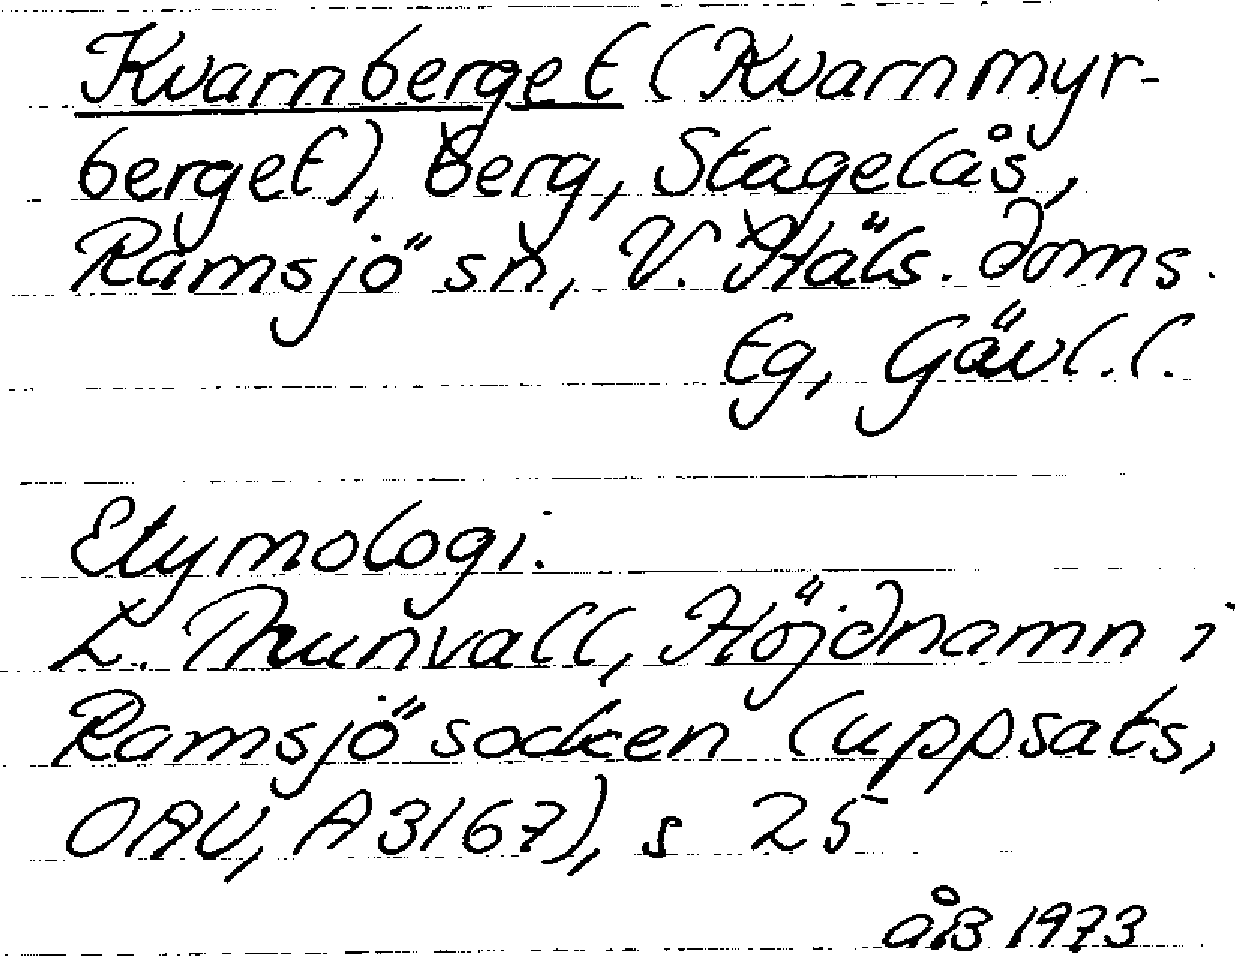 Kvarnberget (Kvarnmyr-
berget), berg, Stagelås,
Ramsjö sn, V. Häls. doms.
tg, Gävl.l.
Etymologi.
L. Thunvall, Höjdnamn i
Ramsjö socken (uppsats,
OAU, A 3167), s 25
åB 1973